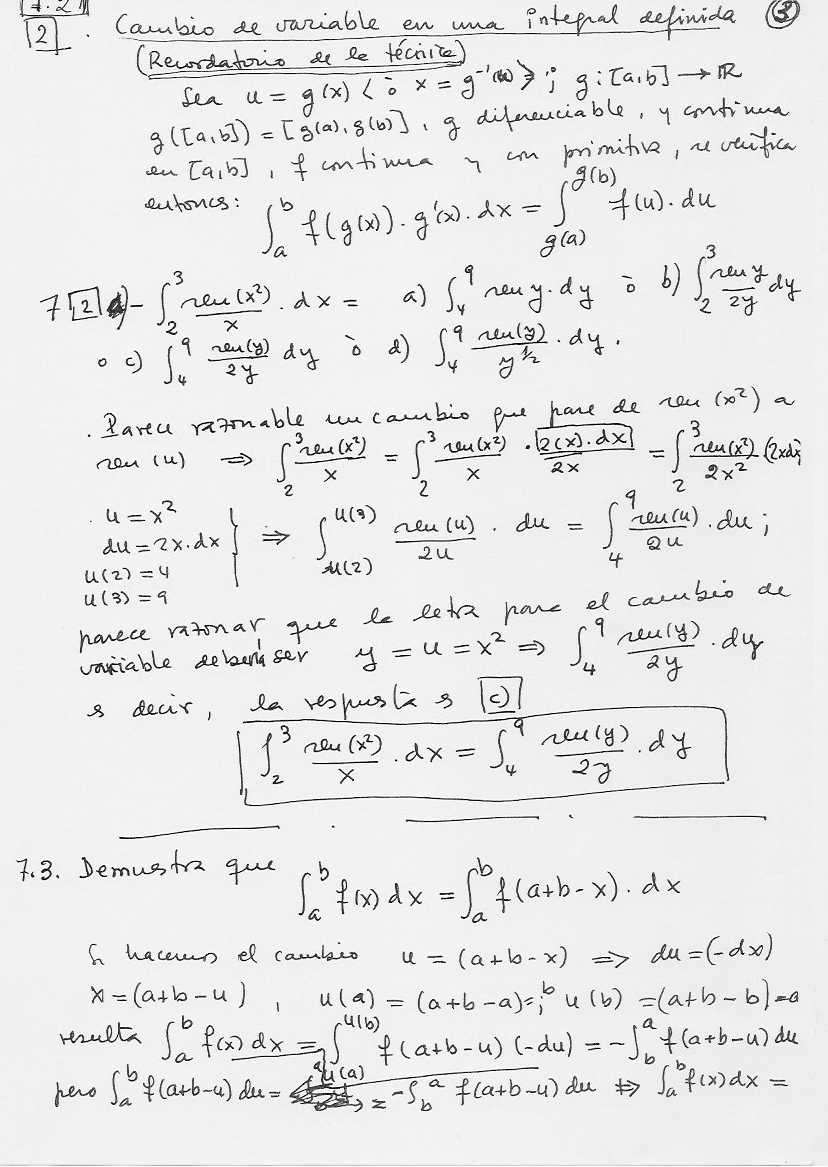 7.2
2. Cambio de variable en una integral definida ③
(Recordatorio de la técnica)
Sea u = g(x) < ò x = g⁻¹(u) >; g: [a,b] → ℝ
g([a,b]) = [g(a), g(b)], g diferenciable, y continua
en [a,b], f continua y con primitiva, se verifica
entonces: ∫_a^b f(g(x)) · g'(x) · dx = ∫_{g(a)}^{g(b)} f(u) · du
7 2 - ∫_2^3 sen(x²)/x · dx = a) ∫_4^9 sen y · dy ò b) ∫_2^3 sen y/2y dy
o c) ∫_4^9 sen(y)/2y dy ò d) ∫_4^9 sen(y)/y^{1/2} · dy.
. Parece razonable un cambio que pase de sen (x²) a
sen (u) ⇒ ∫_2^3 sen(x²)/x = ∫_2^3 sen(x²)/x · 2(x)·dx/2x = ∫_2^3 sen(x²)/2x² (2xdx)
. u = x²
du = 2x·dx } ⇒ ∫_{u(2)}^{u(3)} sen(u)/2u · du = ∫_4^9 sen(u)/2u · du;
u(2) = 4
u(3) = 9
parece razonar, que la letra para el cambio de
variable deberia ser y = u = x² ⇒ ∫_4^9 sen(y)/2y · dy
es decir, la respuesta es c)
∫_2^3 sen(x²)/x · dx = ∫_4^9 sen(y)/2y · dy
7.3. Demuestra que
∫_a^b f(x) dx = ∫_a^b f(a+b-x) · dx
Si hacemos el cambio u = (a+b-x) ⇒ du = (-dx)
x = (a+b-u), u(a) = (a+b-a) = b; u(b) = (a+b-b) = a
resulta ∫_a^b f(x) dx = ∫_{u(a)}^{u(b)} f(a+b-u) (-du) = -∫_b^a f(a+b-u) du
pero ∫_a^b f(a+b-u) du = = -∫_b^a f(a+b-u) du ⇒ ∫_a^b f(x) dx =